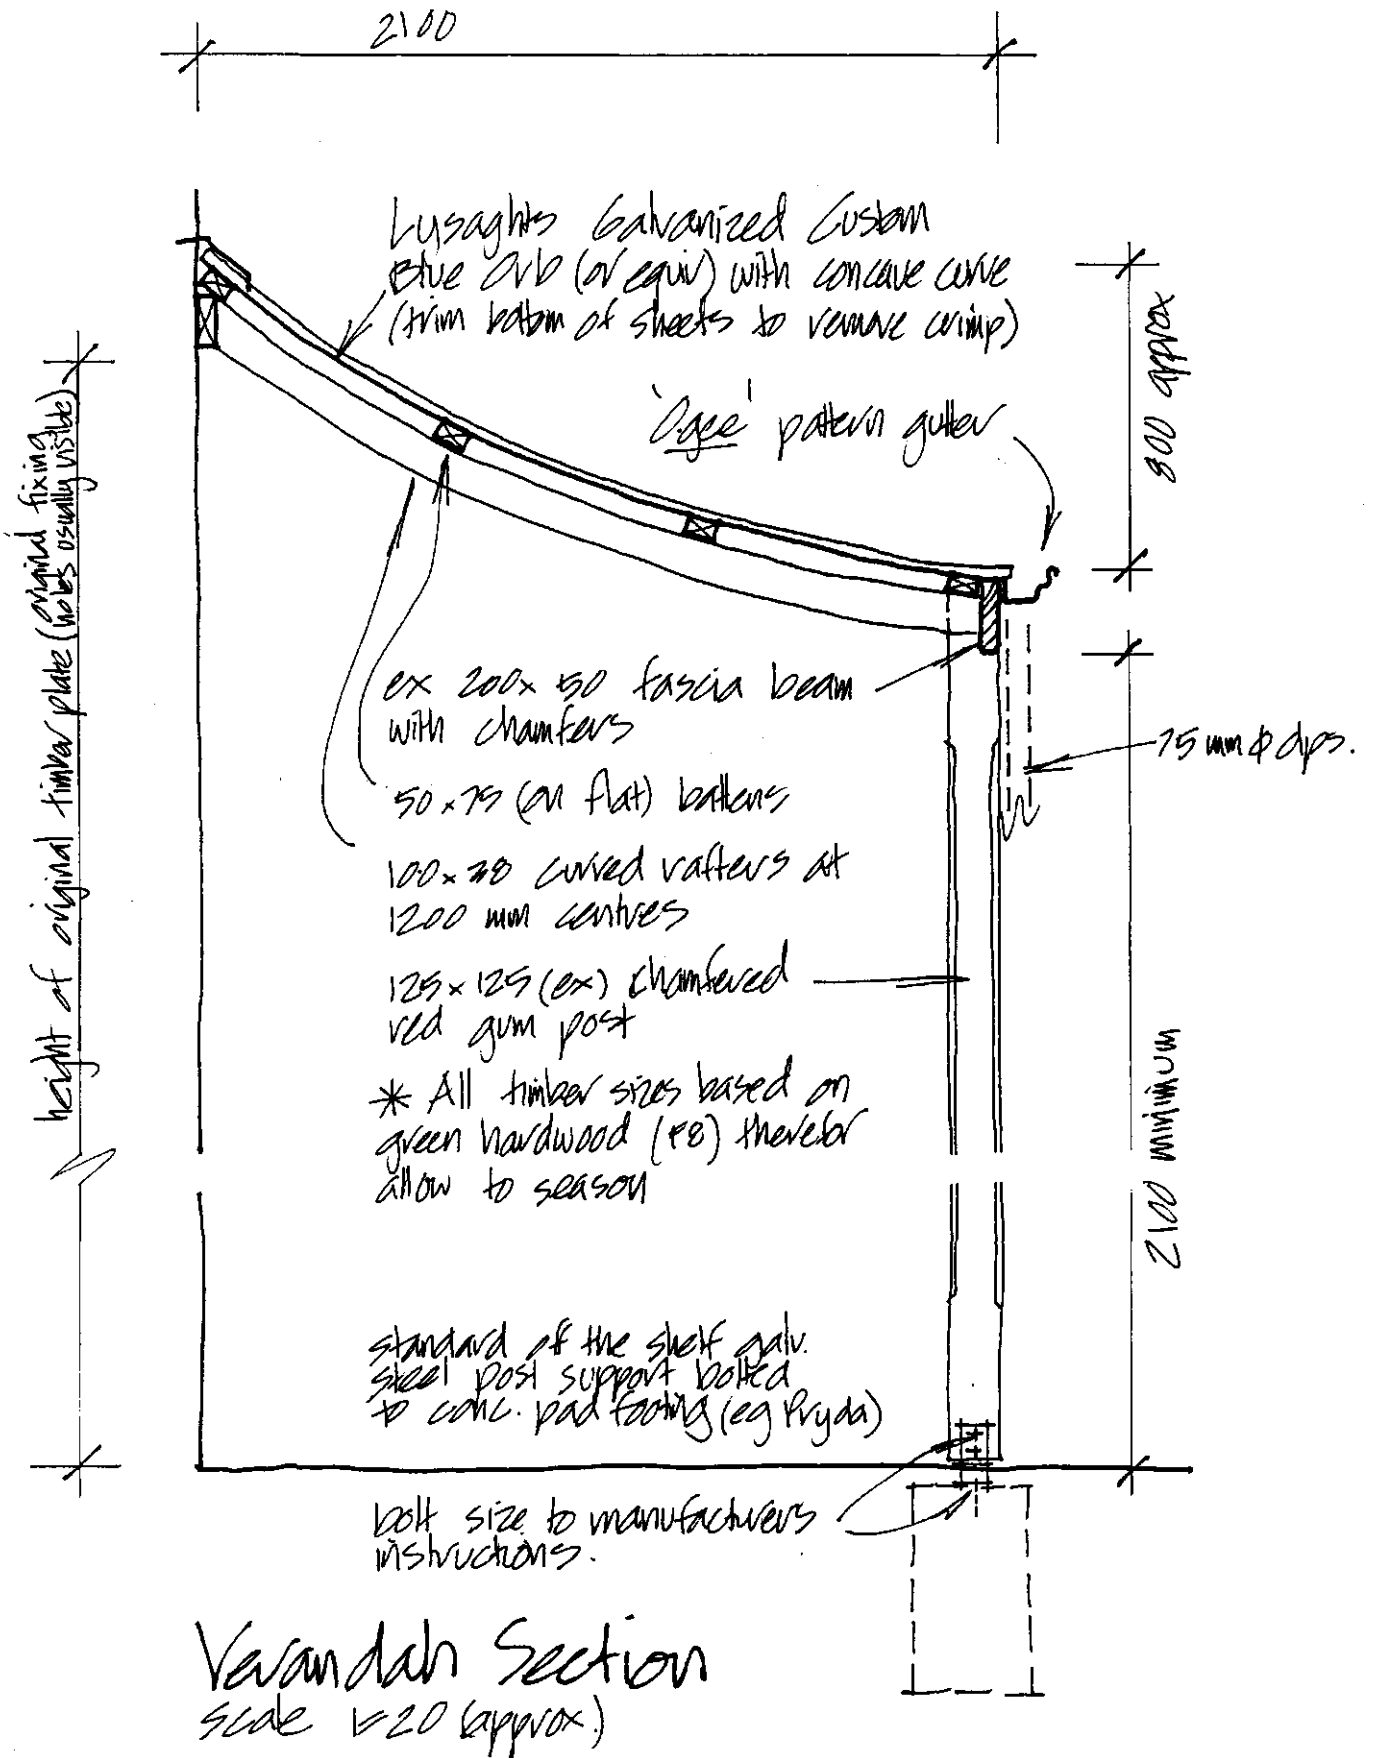 2100
Lysaghts Galvanized Custom
Blue Orb (or equiv) with concave curve
(trim bottom of sheets to remove crimp)
'Ogee' pattern gutter
800 approx
height of original timber plate (original fixing
holes usually visible)
ex 200x50 fascia beam
with chamfers
75 mm φ dps.
50x75 (on flat) battens
100x38 curved rafters at
1200 mm centres
125x125 (ex) chamfered
red gum post
* All timber sizes based on
green hardwood (F8) therefor
allow to season
2100 minimum
standard of the shelf galv.
steel post support bolted
to conc. pad footing (eg Pryda)
bolt size to manufacturers
instructions.
Verandah Section
scale 1:20 (approx.)